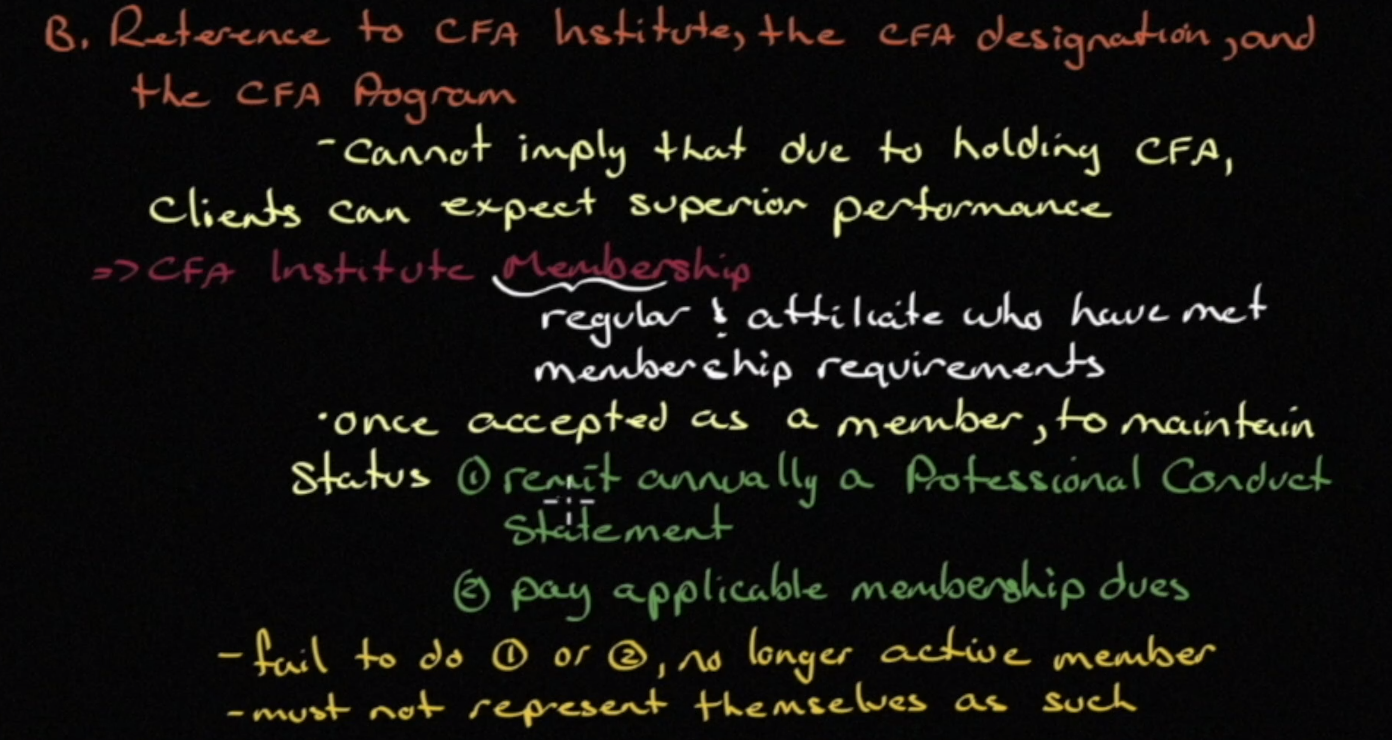 B. Reference to CFA Institute, the CFA designation, and
the CFA Program
- Cannot imply that due to holding CFA,
Clients can expect superior performance
=> CFA Institute Membership
regular & affiliate who have met
membership requirements
· once accepted as a member, to maintain
Status ① remit annually a Professional Conduct
Statement
② pay applicable membership dues
- fail to do ① or ②, no longer active member
- must not represent themselves as such